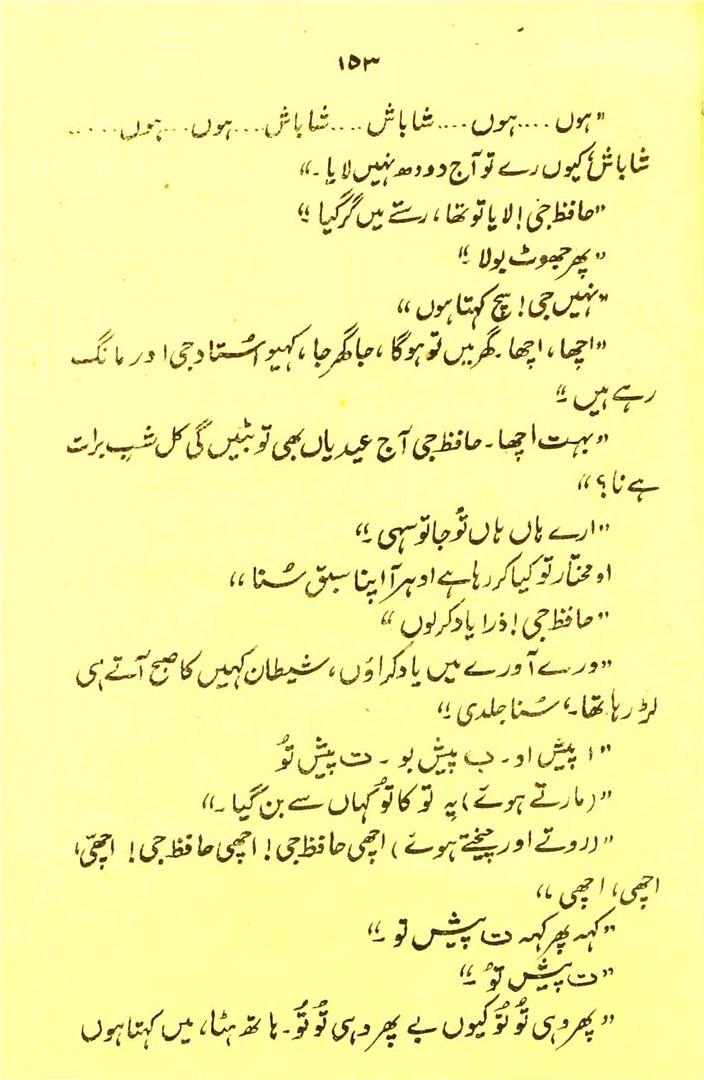 ۱۵۳
”ہوں....ہوں....شاباش....شاباش....ہوں....ہوں.....
شاباش، کیوں رے تو آج دودھ نہیں لایا۔“
”حافظ جی! لایا تو تھا، رستے میں گر گیا۔“
”پھر جھوٹ بولا۔“
”نہیں جی! سچ کہتا ہوں“
”اچھا، اچھا۔ گھر میں تو ہوگا، جا گھر جا، کہیو اُستاد جی اور مانگ
رہے ہیں۔“
”بہت اچھا۔ حافظ جی آج عیدیاں بھی تو بٹیں گی کل شبِ برات
ہے نا؟“
”ارے ہاں ہاں تُو جا تو سہی۔“
او مختار تو کیا کر رہا ہے ادہر آ اپنا سبق سُنا“
”حافظ جی! ذرا یاد کر لوں“
”ورے آ ورے میں یاد کراؤں، شیطان کہیں کا صبح آتے ہی
لڑ رہا تھا۔ سُنا جلدی۔“
”ا پیش او۔ ب پیش بو۔ ت پیش تُو
”(مارتے ہوئے) یہ تو کا تُو کہاں سے بن گیا۔“
”(روتے اور چیختے ہوئے) اچھی حافظ جی! اچھی حافظ جی! اچھّی،
اچھی، اچھی“
”کہہ پھر کہہ ت پیش تو۔“
”ت پیش تُو۔“
”پھر وہی تُو تُو کیوں بے پھر وہی تُو تُو۔ ہاتھ ہٹا، میں کہتا ہوں